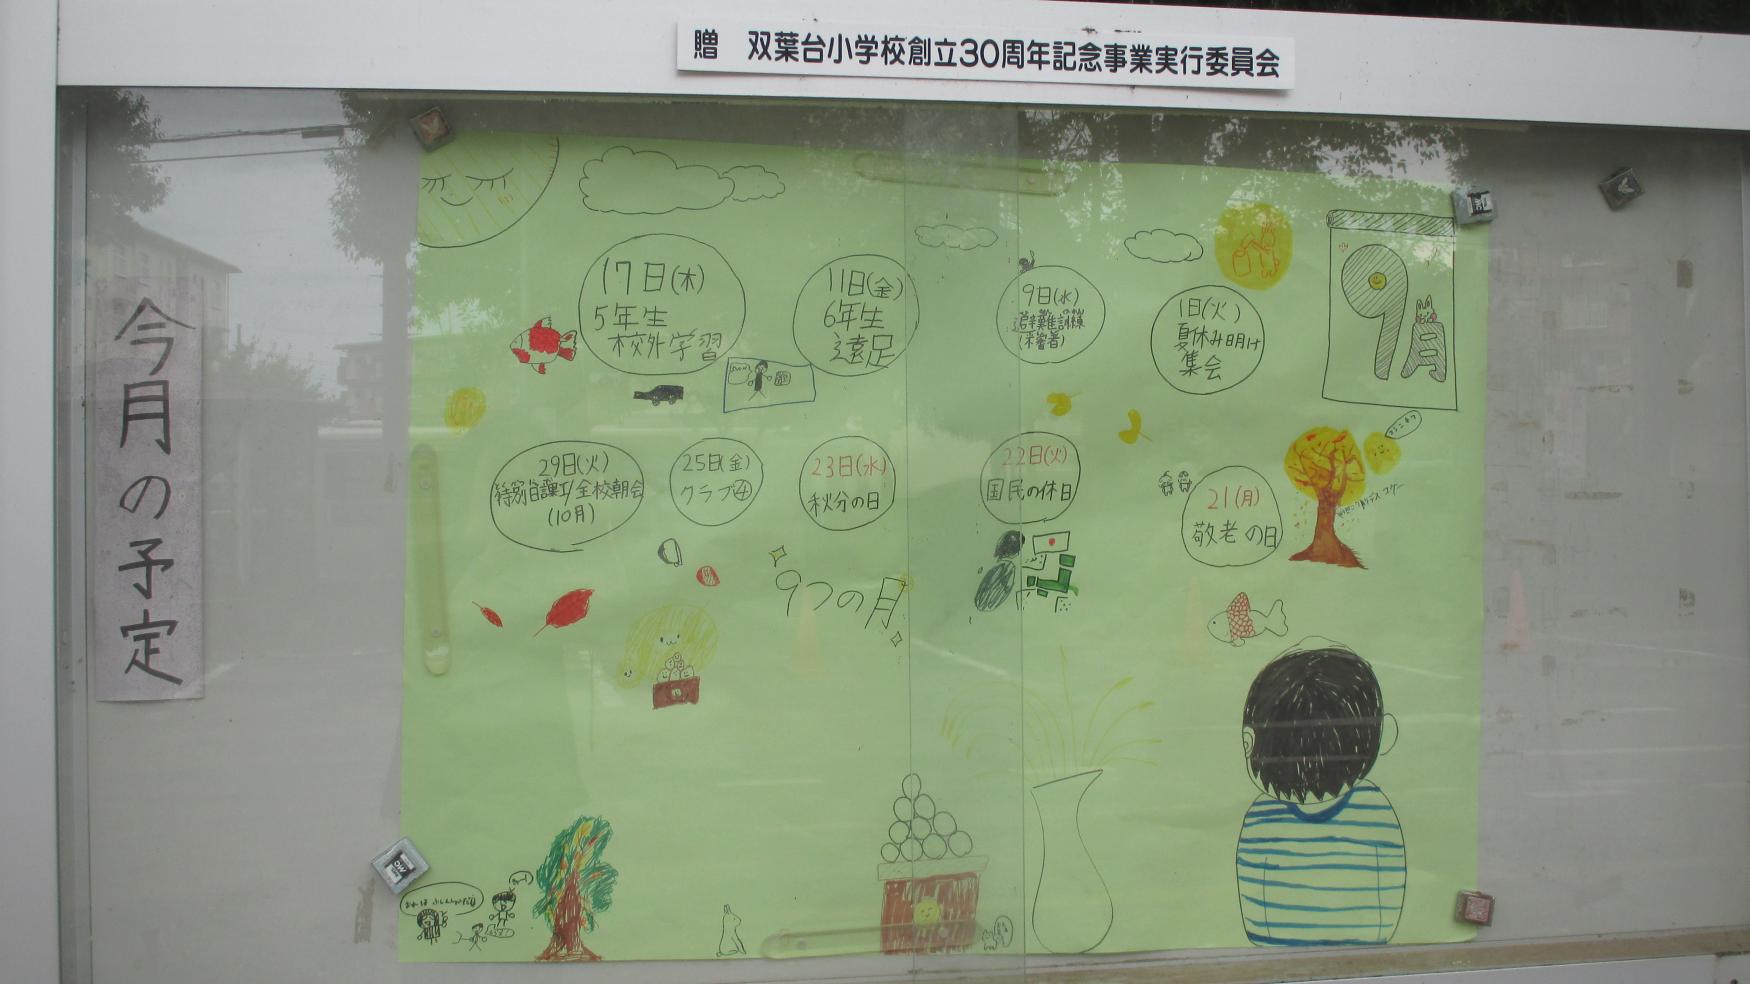 贈 双葉台小学校創立30周年記念事業実行委員会
今月の予定
9月
1日(火)
夏休み明け
集会
9日(水)
避難訓練
11日(金)
6年生
遠足
17日(木)
5年生
校外学習
21(月)
敬老の日
22日(火)
国民の休日
23日(水)
秋分の日
25日(金)
クラブ④
29日(火)
特別日課I/全校朝会
(10月)
9つの月